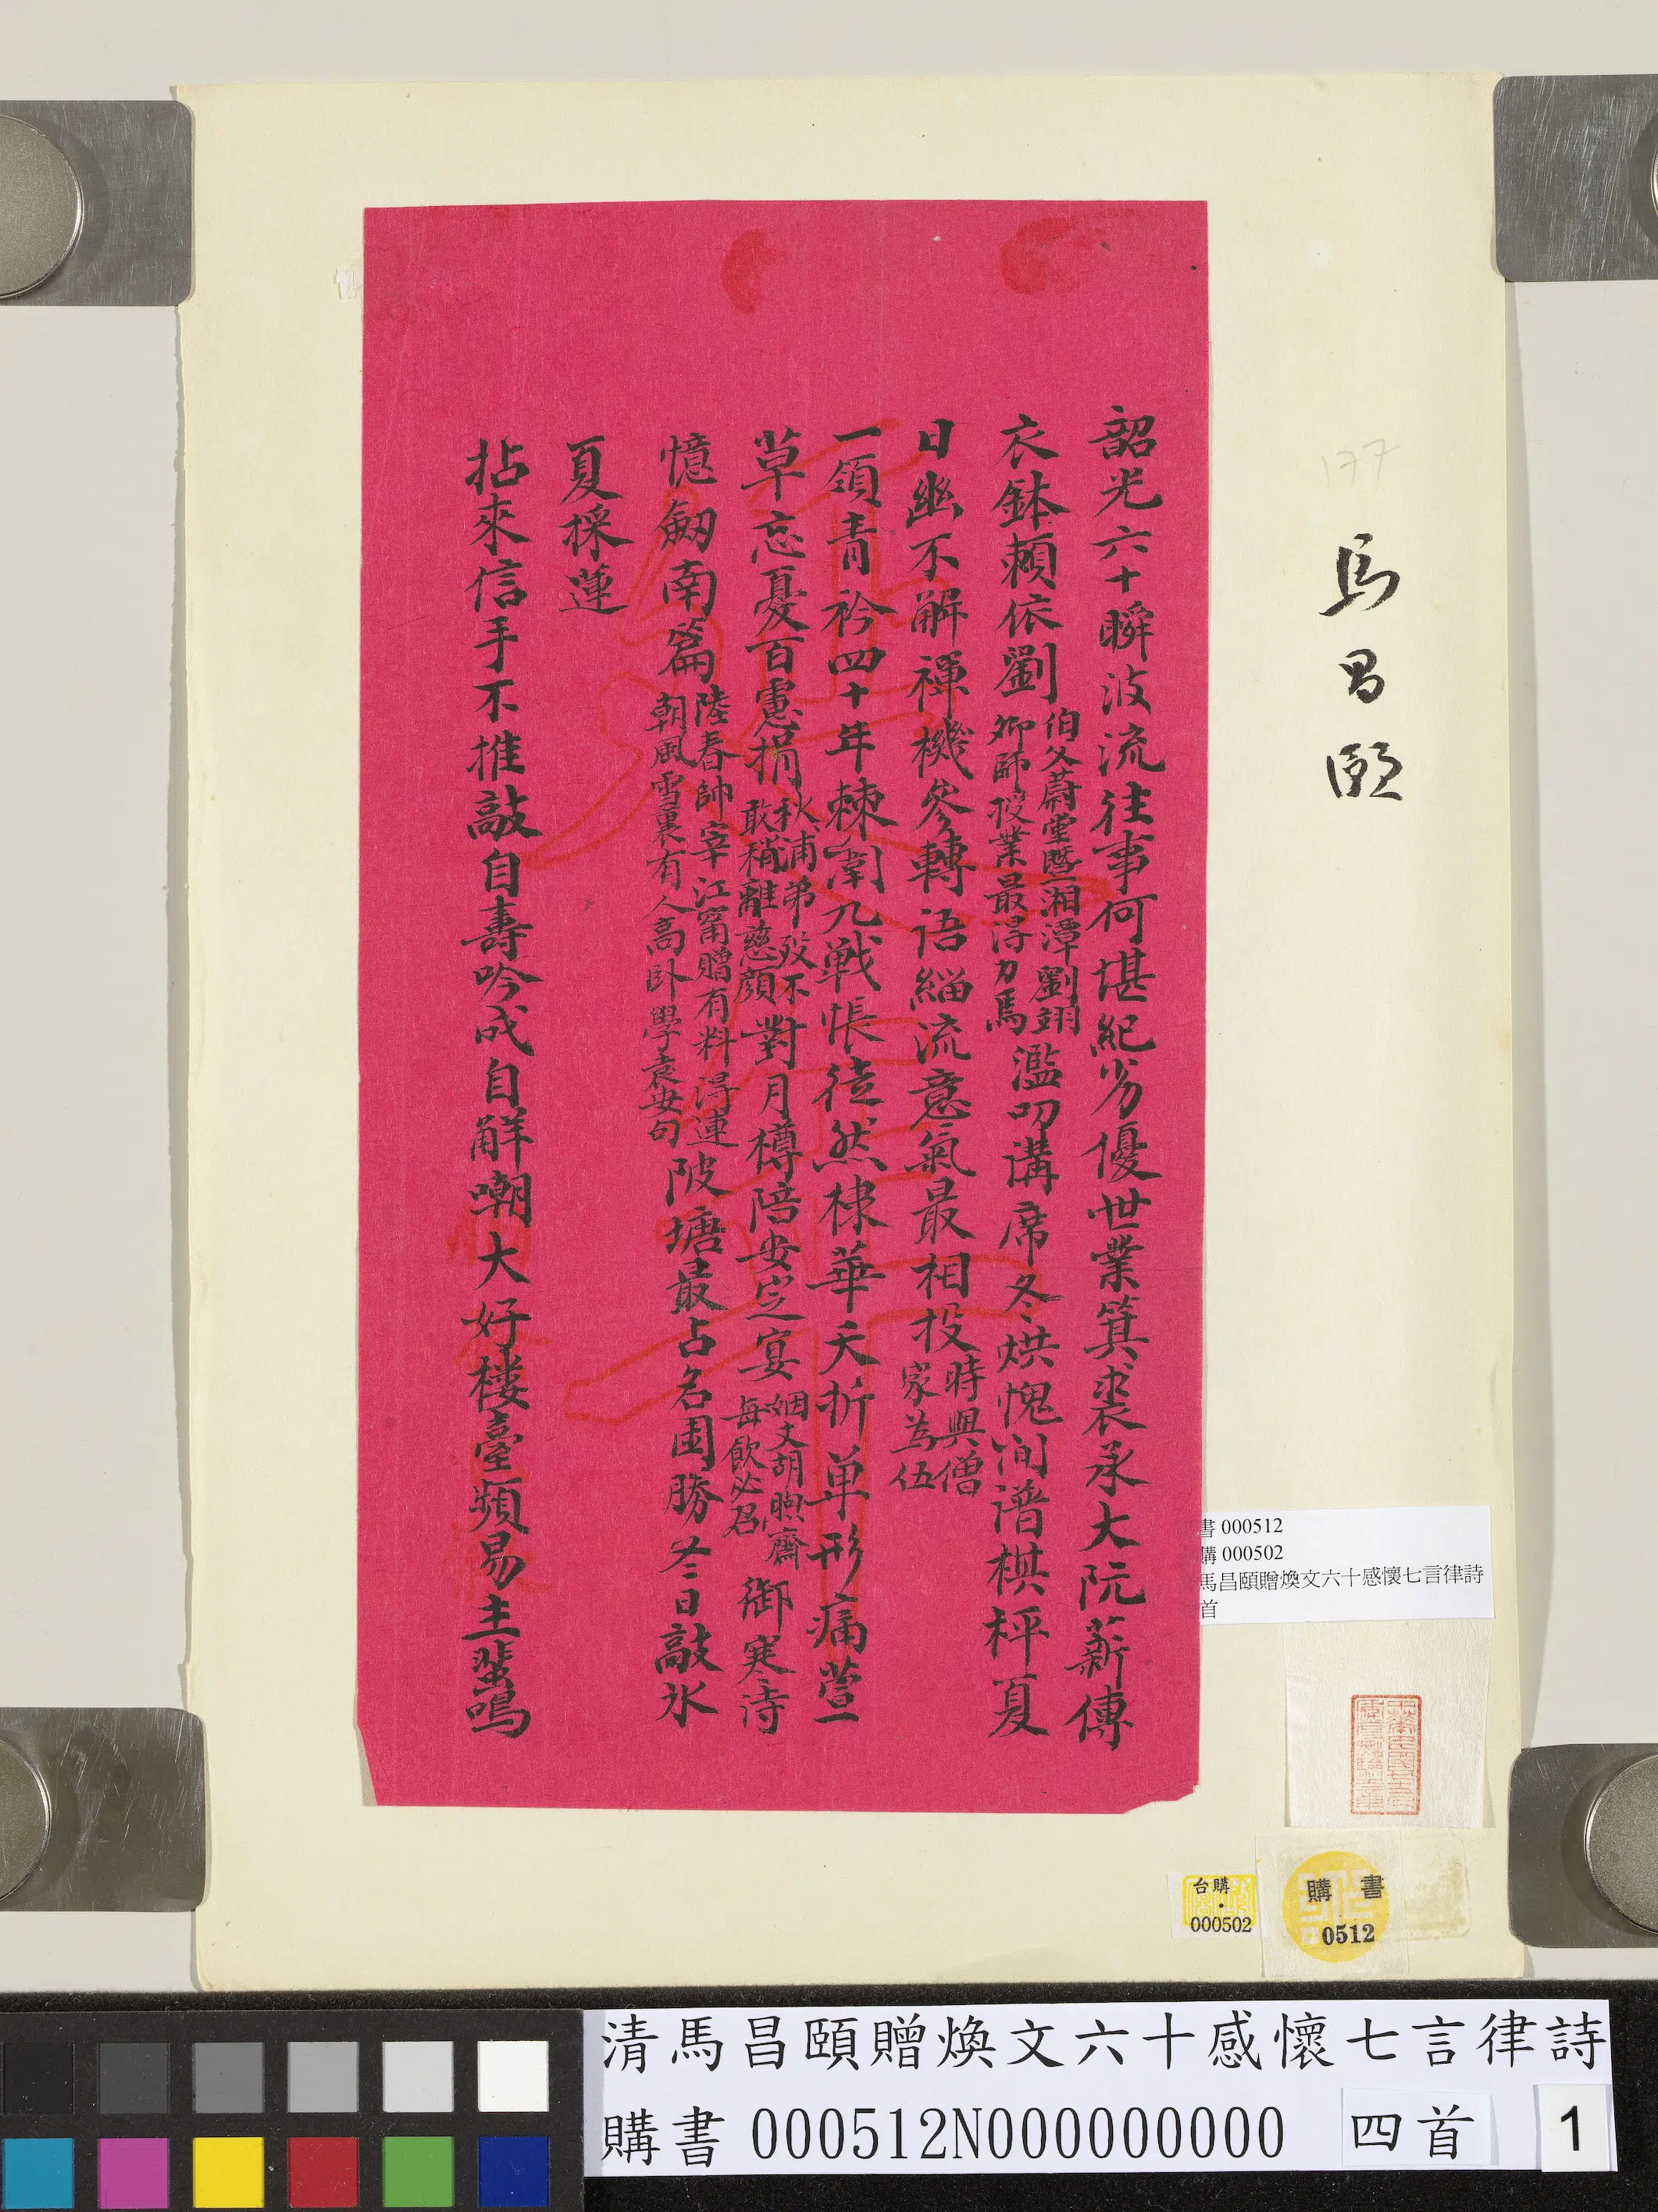 韶光六十瞬波流往事何堪紀劣優世業箕裘承大阮薪傳
衣鉢賴依劉
伯父蔚堂暨湘潭劉翊
卿師授業最得力焉
濫叨講席冬烘愧淘譜棋枰夏
日幽不解禪機參轉語緇流意氣最相投
時與僧
家為伍
一領青衿四十年棘闈九戰悵徒然棣華夭折单形痛萱
草忘憂百慮捐
秋浦弟歿不
敢稍離慈顏
對月樽陪安定宴
姻丈胡煦齋
每飲必召
御寒詩
憶劒南篇
陸春帥宰江甯贈有料得連
朝風雪裏有人高卧學袁安句
陂塘最占名園勝冬日敲氷
夏採蓮
拈來信手不推敲自壽吟成自解嘲大好樓臺頻易主蜚鳴
177
馬昌頤
書 000512
購 000502
馬昌頤贈煥文六十感懷七言律詩
首
台購
000502
購書
0512
清馬昌頤贈煥文六十感懷七言律詩
購書 000512N000000000 四首 1